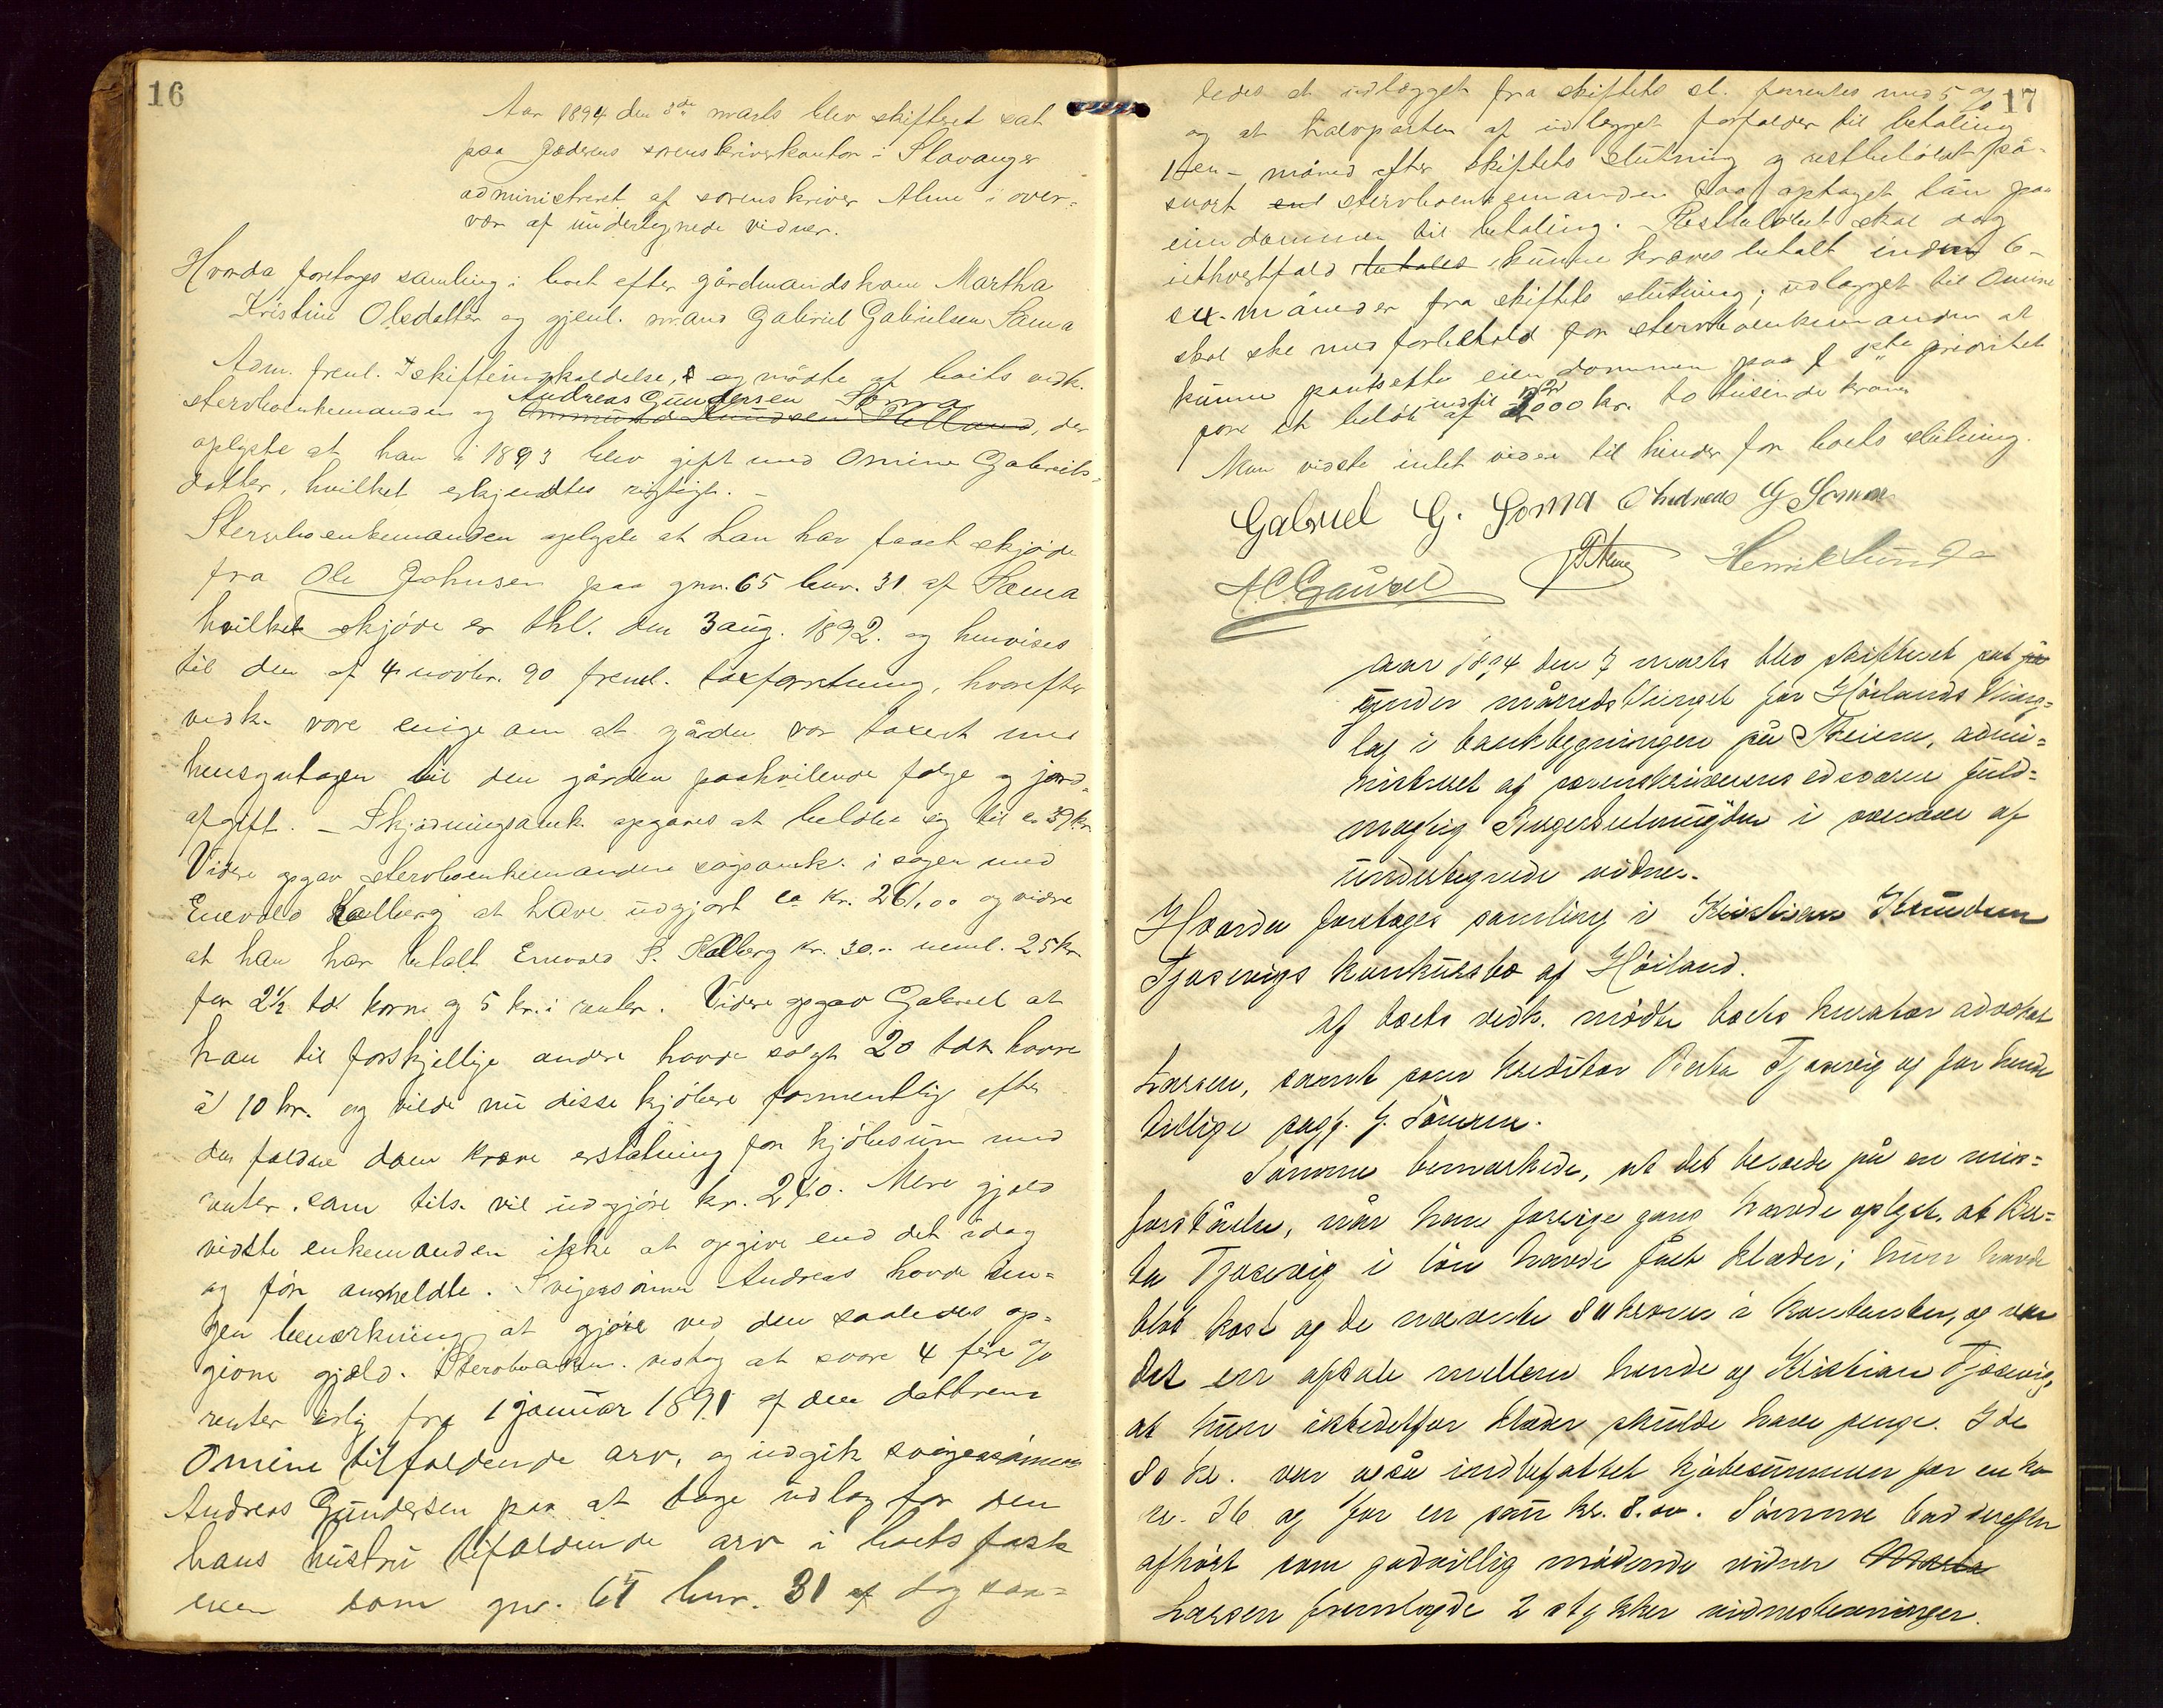 16
Aar 1894 den 3die marts blev skiftet sat
paa Jæderens sorenskriverkontor i Stavanger
administreret af sorenskriver Alme i over-
vær af undertegnede vidner.
Hvorda foretoges samling i boet efter gårdmandskone Martha
Kristine Olsdatter og gjenl. mand Gabriel Gabrielsen Soma
Adm. freml. skifteindkaldelse, og mødte af boets vedk.
Andreas Gundersen Soma
stervboenkemanden og Ommund Knudsen Helland, der
oplyste at han i 1893 blev gift med Omine Gabriels-
datter, hvilket erkjendtes rigtigt. -
Stervboenkemanden oplyste at han har faaet skjøde
fra Ole Johnsen paa gnr. 65 bnr. 31 af Soma
hvilket skjøde er thl. den 3 aug. 1892. og henvises
til den af 4 novbr. 90 freml. taxforretning, hvorefter
vedk. vare enige om at gården var taxert med
hensyntagen til den gården paahvilende følge og jord-
afgift. - Skjødningsomk. opgaves at beløbe sig til ca 39 kr.
Videre opgav stervboenkemanden sagsomk. i sagen med
Enevald Kalberg at have udgjort ca kr. 261.00 og videre
at han har betalt Enevald S. Kalberg kr. 30.00 neml. 25 kr
for 2½ td. korn og 5 kr. i renter. Videre opgav Gabriel at
han til forskjellige andre havde solgt 20 tdr havre
à 10 kr. og vilde nu disse kjøbere formentlig efter
den faldne dom kræve erstatning for kjøbesum med
renter, som tils. vil udgjøre kr. 240. Mere gjæld
vidste enkemanden ikke at opgive end det idag
og før anmeldte. Svigersønnen Andreas havde in-
gen bemærkning at gjøre ved den saaledes op-
givne gjæld. Stervboenkem. vedtog at svare 4 fire %
renter årlig fra 1 januar 1891 af den datteren
Omine tilfaldende arv, og indgik svigersønnen
Andreas Gundersen paa at tage udlæg for den
hans hustru tilfaldende arv i boets faste
eien dom gnr. 65 bnr. 31 af dog saa-
17
ledes at udlægget fra skiftets sl. forrentes med 5 %
og at halvparten af udlægget forfalder til betaling
1 en - måned efter skiftets slutning og restbeløbet så-
snart end stervboenkemanden faar optaget lån paa
eiendommen til betaling. Restbeløbet skal dog
ialhvertfald betales kunne kræves betalt inden 6 -
sex - måneder fra skiftets slutning; udlægget til Omine
skal ske med forbehold for stervboenkemanden at
kunne pantsætte eiendommen paa 1ste prioritet
for et beløb indtil af 2000 kr. to tusinde kroner
Man vidste intet videre til hinder for boets slutning.
Gabriel G. Soma Andreas G Soma
A. C. Gausel P Alme Henrik Lunde
Aar 1894 den 7 marts blev skifteret sat på
under månedstinget for Høilands thing-
lag i bankbygningen på Steien, admi-
nistreret af sorenskriverens edsvorne fuld-
mægtig i overvær af
undertegnede vidner.
Hvorda foretoges samling i Kristian Knudsen
Tjosevigs konkursbo af Høiland.
Af boets vedk. mødte boets kurator advokat
Larsen, samt som kreditor Berta Tjosevig og for hende
tillige sagf. G. Sømme.
Sømme bemærkede, at det beroede på en mis-
forståelse, når han forrige gang havde oplyst, at Ber-
ta Tjosevig i løn havde fået klæder; hun havde
blot kost og de nævnte 80 kroner i kontanter, og var
det en aftale mellem hende og Kristian Tjosevig,
at hun istedetfor klæder skulde have penge. I de
80 kr. var også indbefattet kjøbesummen for en ko
kr. 36 og for en sau kr. 8.00. Sømme bad derefter
afhørt som godvillig mødende vidner
Larsen fremlagde 2 stykker vidnesbevisninger.